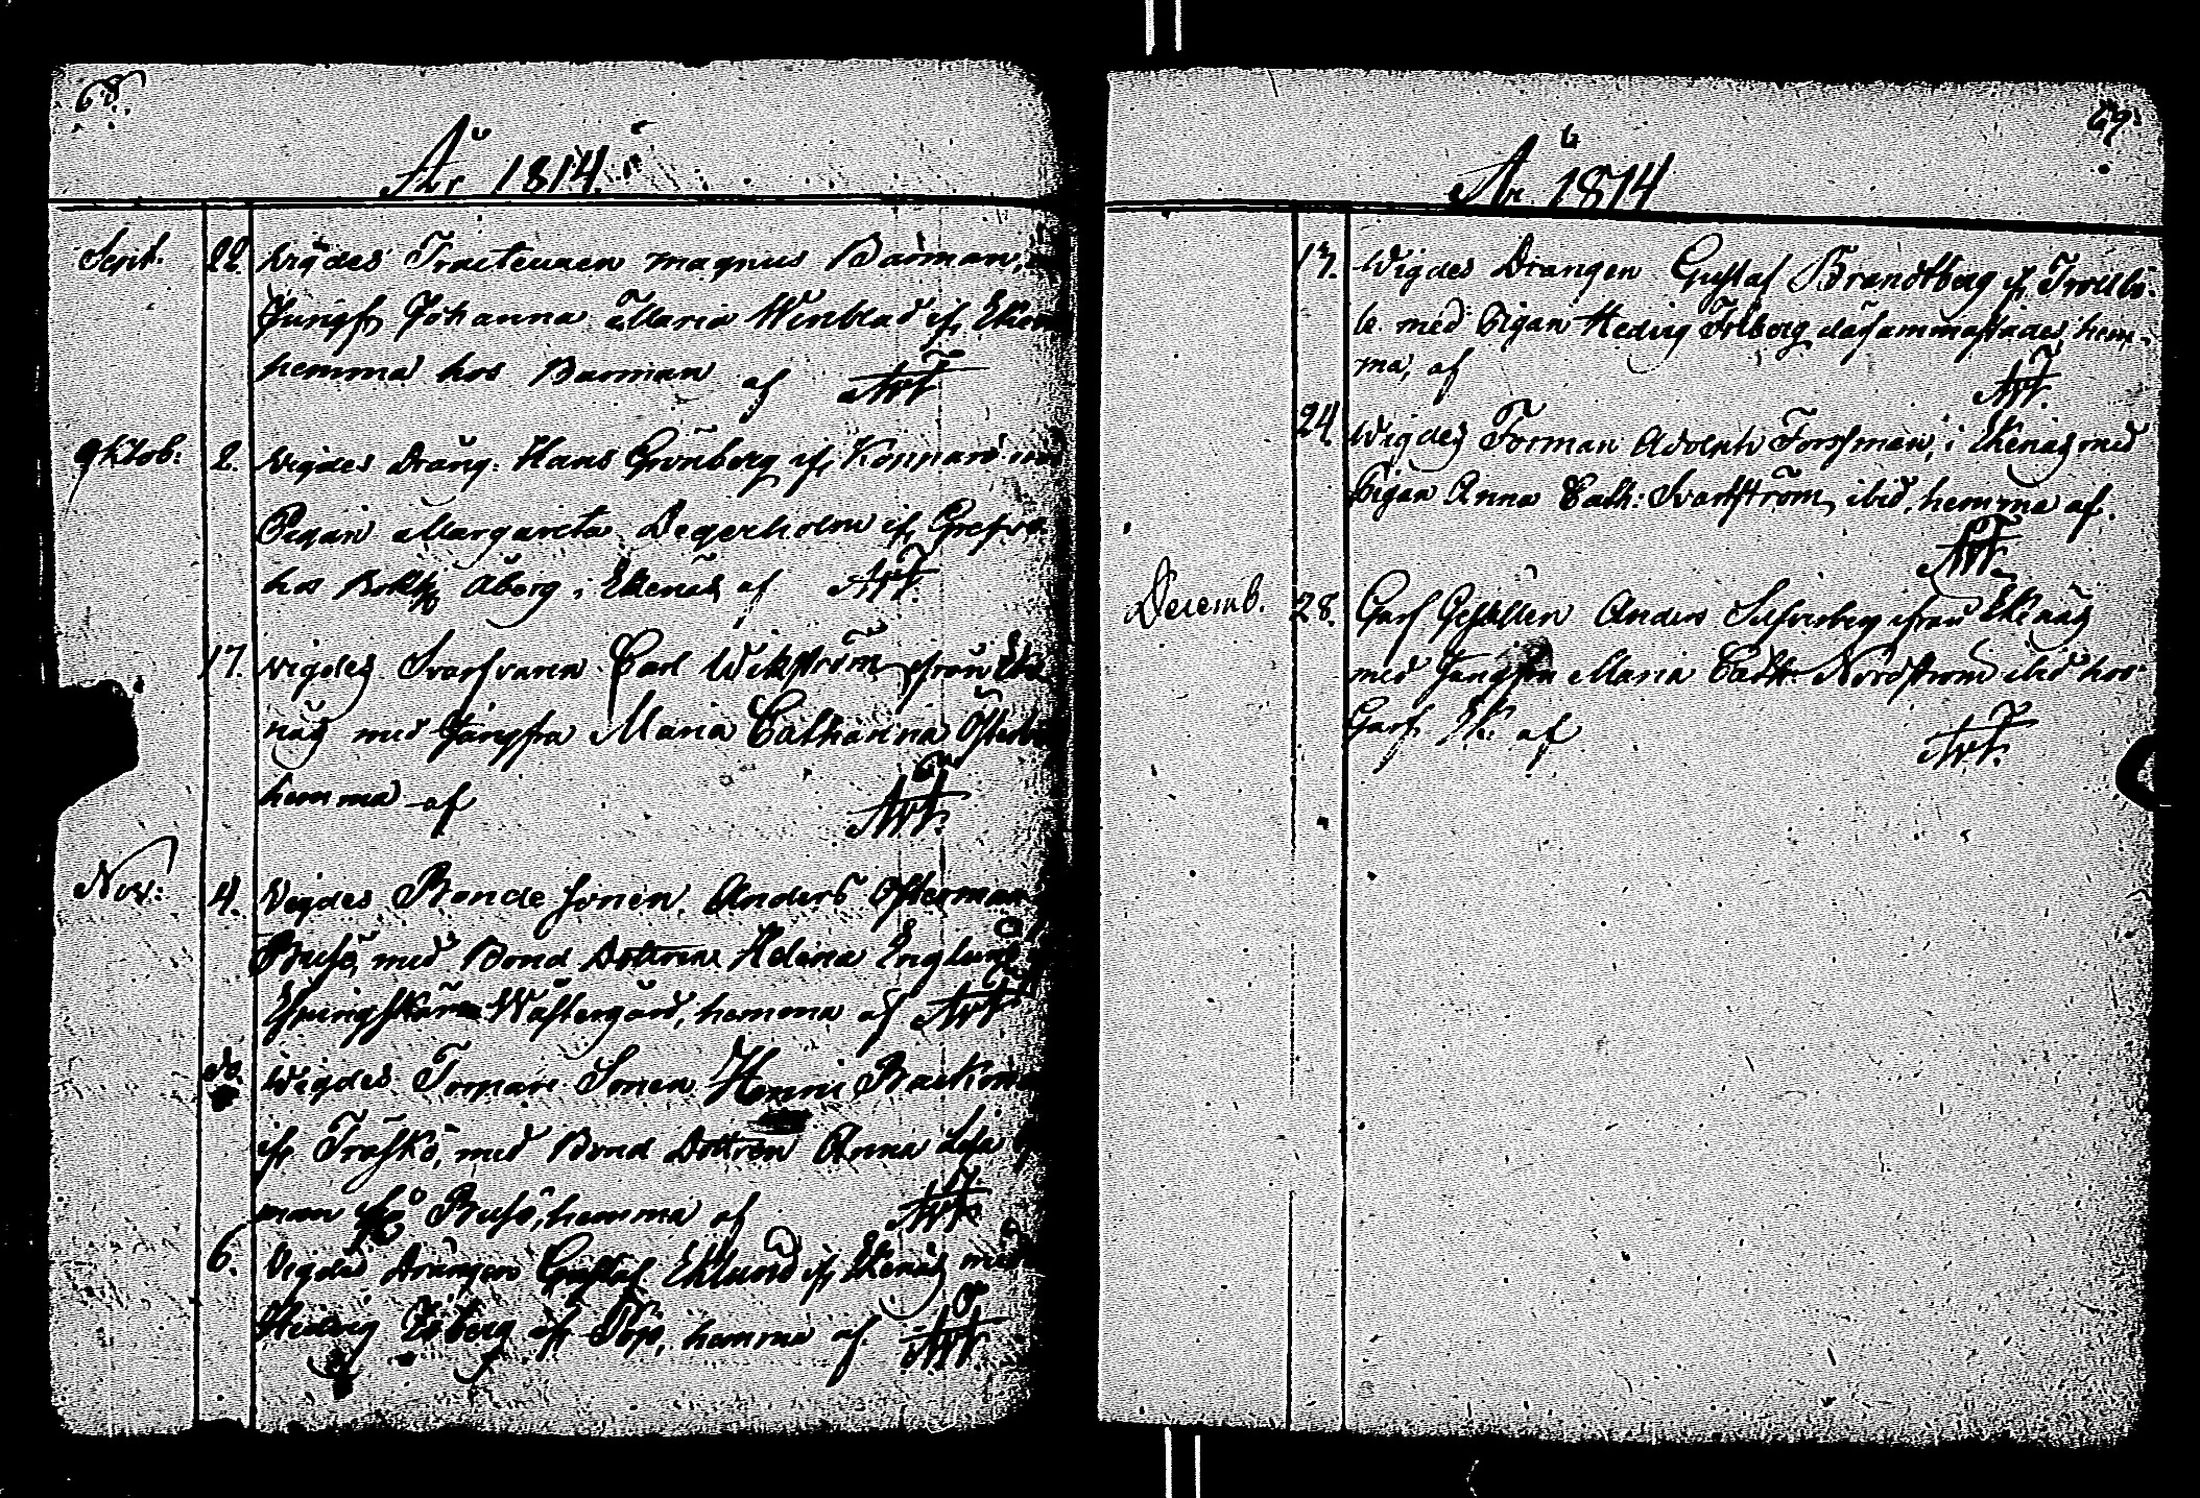 68.
År 1814.
Sept. 22. Wigdes Tracteuren Magnus Barman,
Jungf. Johanna Maria Winblad ifr
hemma hos Barman af
Oktob. 2. Wigdes Dräng. Hans Grönberg ifr
Pigan Margareta Degerholm ifr
hos Bokh. Åberg i Ekenäs af
17. Wigdes Svarfvaren Carl Wikström ifrån Eke-
näs med Jungfru Maria Catharina
hemma af
Nov. 4. Wigdes Bonde Sonen Anders Österman
Busö, med Bond Dottren Helena Englund
Wästergård, hemma af
do. Wigdes Torpare Sonen Henric
ifr Träskö, med Bond Dottren Anna Lisa
man ifr Busö, hemma af
6. Wigdes Drängen Gustaf Eklund ifr Ekenäs med
Hedvig ifr hemma af
69.
År 1814
13. Wigdes Drängen Gustaf Brandtberg ifr Trollbö-
le med Pigan Hedvig därsammastädes, hem-
ma, af
24 Wigdes Forman Adolph Forssman, i Ekenäs med
Pigan Anna Cath: Svartström ibid, hemma af.
Decemb. 28. Garf Gesällen Anders Silfverberg ifrån Ekenäs
med Jungfru Maria Cath: Nordström ibid hos
Garf. af